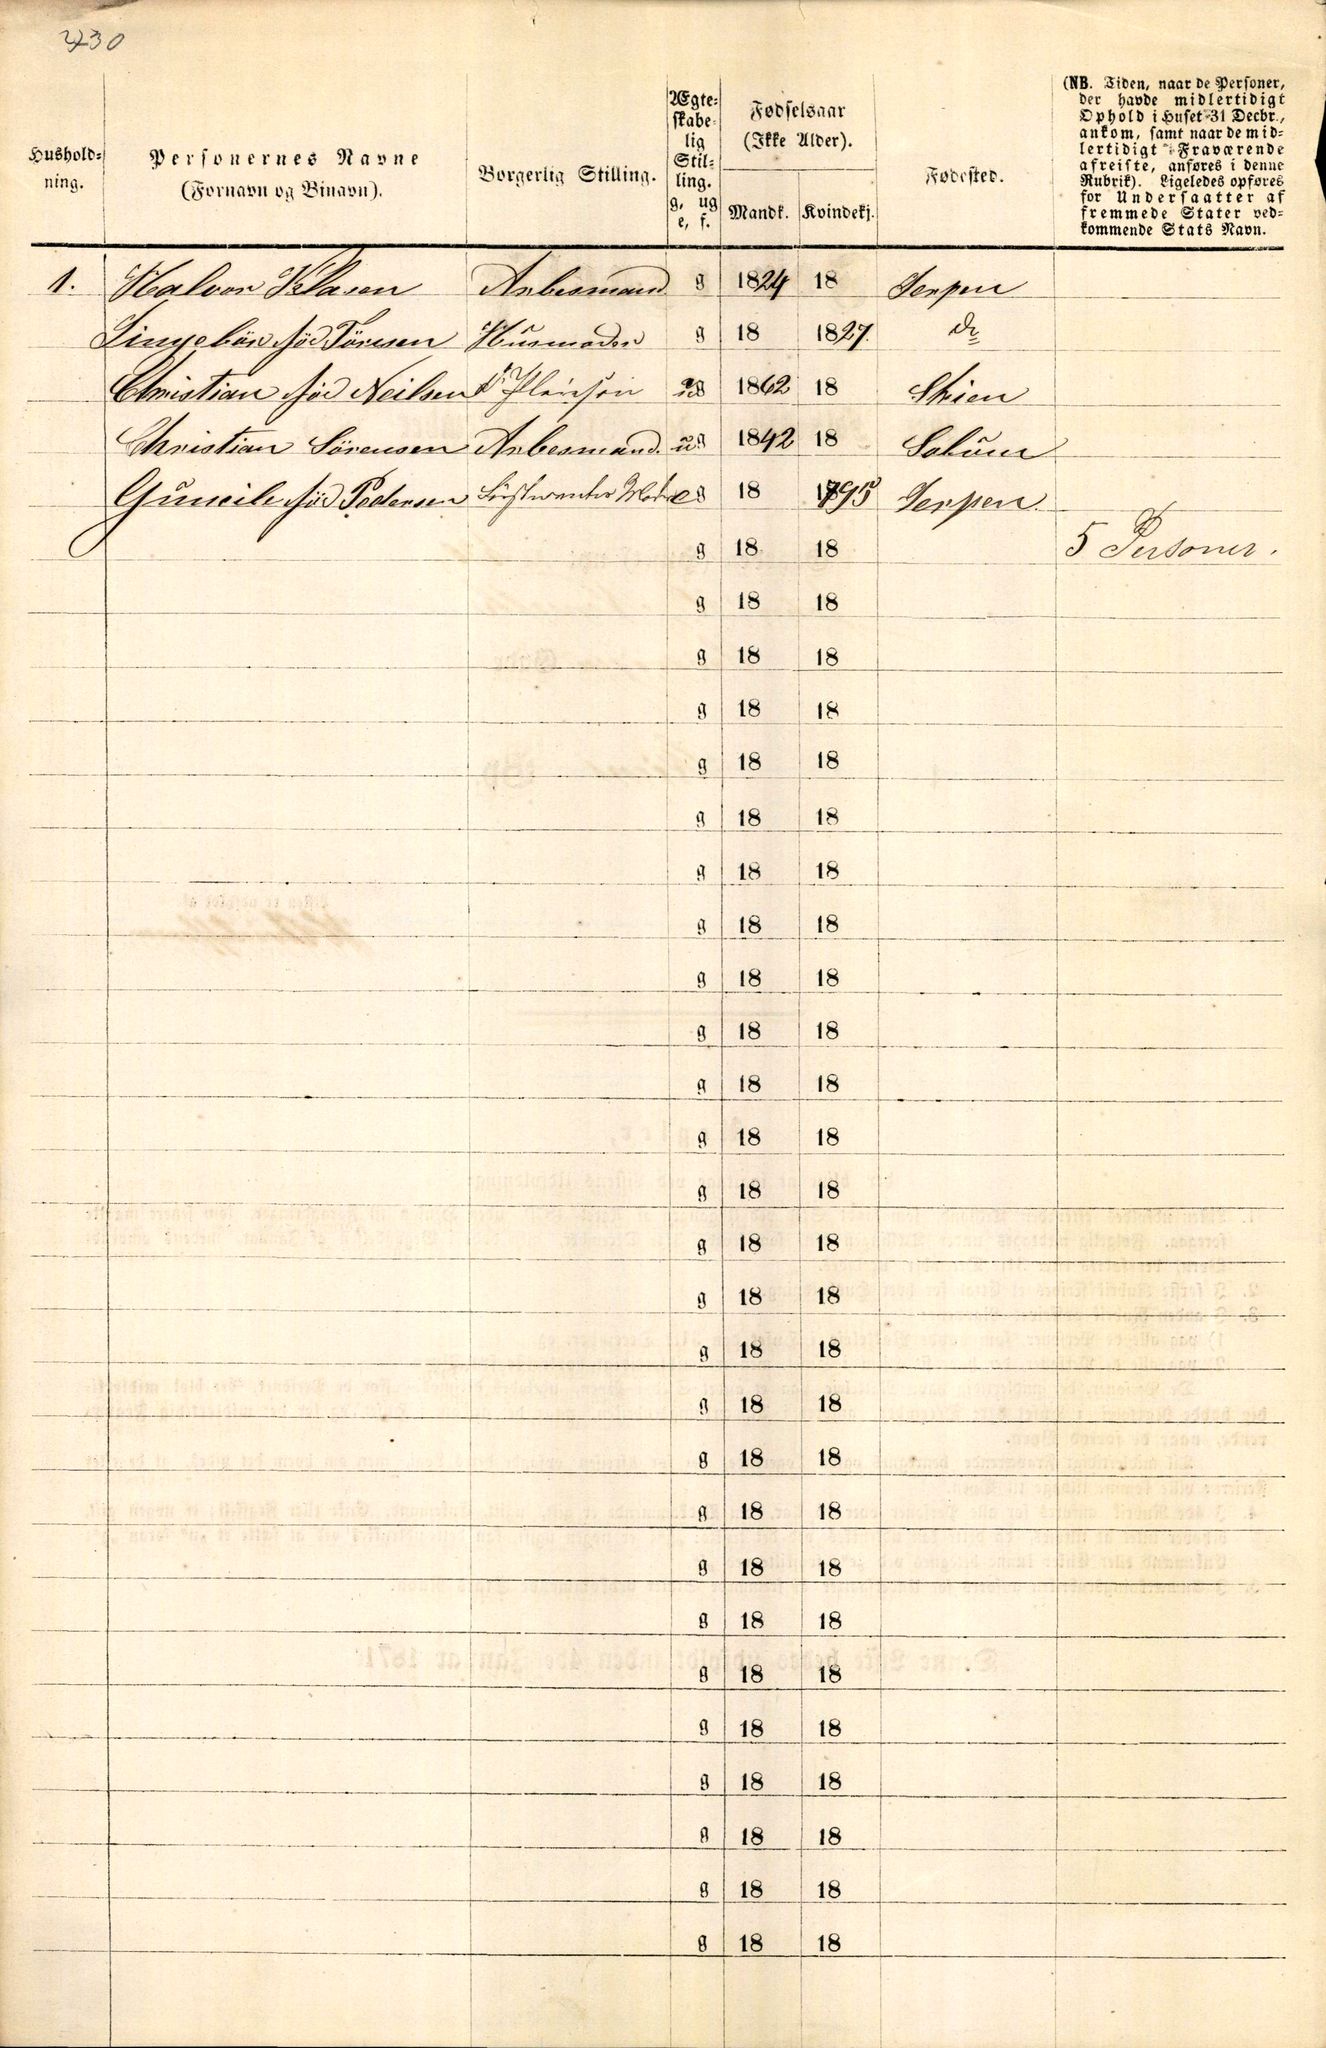 230
Hushold-
ning.
Personernes Navne
(Fornavn og Binavn).
Borgerlig Stilling.
Ægte-
skabe-
lig
Stil-
ling.
g, ug
e, f.
Fødselsaar
(Ikke Alder).
Mandk.
Kvindekj.
Fødested.
(NB. Tiden, naar de Personer,
der havde midlertidigt
Ophold i Huset 31 Decbr.,
ankom, samt naar de mid-
lertidigt Fraværende
afreiste, anføres i denne
Rubrik). Ligeledes opføres
for Undersaatter af
fremmede Stater ved-
kommende Stats Navn.
1. Halvor Klasen Arbesmand g 1824 18 Jerpen
Husmoder g 18 1827. do
Christian fød Neilsen ug 1862 18 Skien
Christian Sørensen Arbesmand. ug 1842 18
fød Pedersen e g 18 1795 Jerpen.
g 18 18 5 Personer.
g 18 18
g 18 18
g 18 18
g 18 18
g 18 18
g 18 18
g 18 18
g 18 18
g 18 18
g 18 18
g 18 18
g 18 18
g 18 18
g 18 18
g 18 18
g 18 18
g 18 18
g 18 18
g 18 18
g 18 18
g 18 18
g 18 18
g 18 18
g 18 18
g 18 18
g 18 18